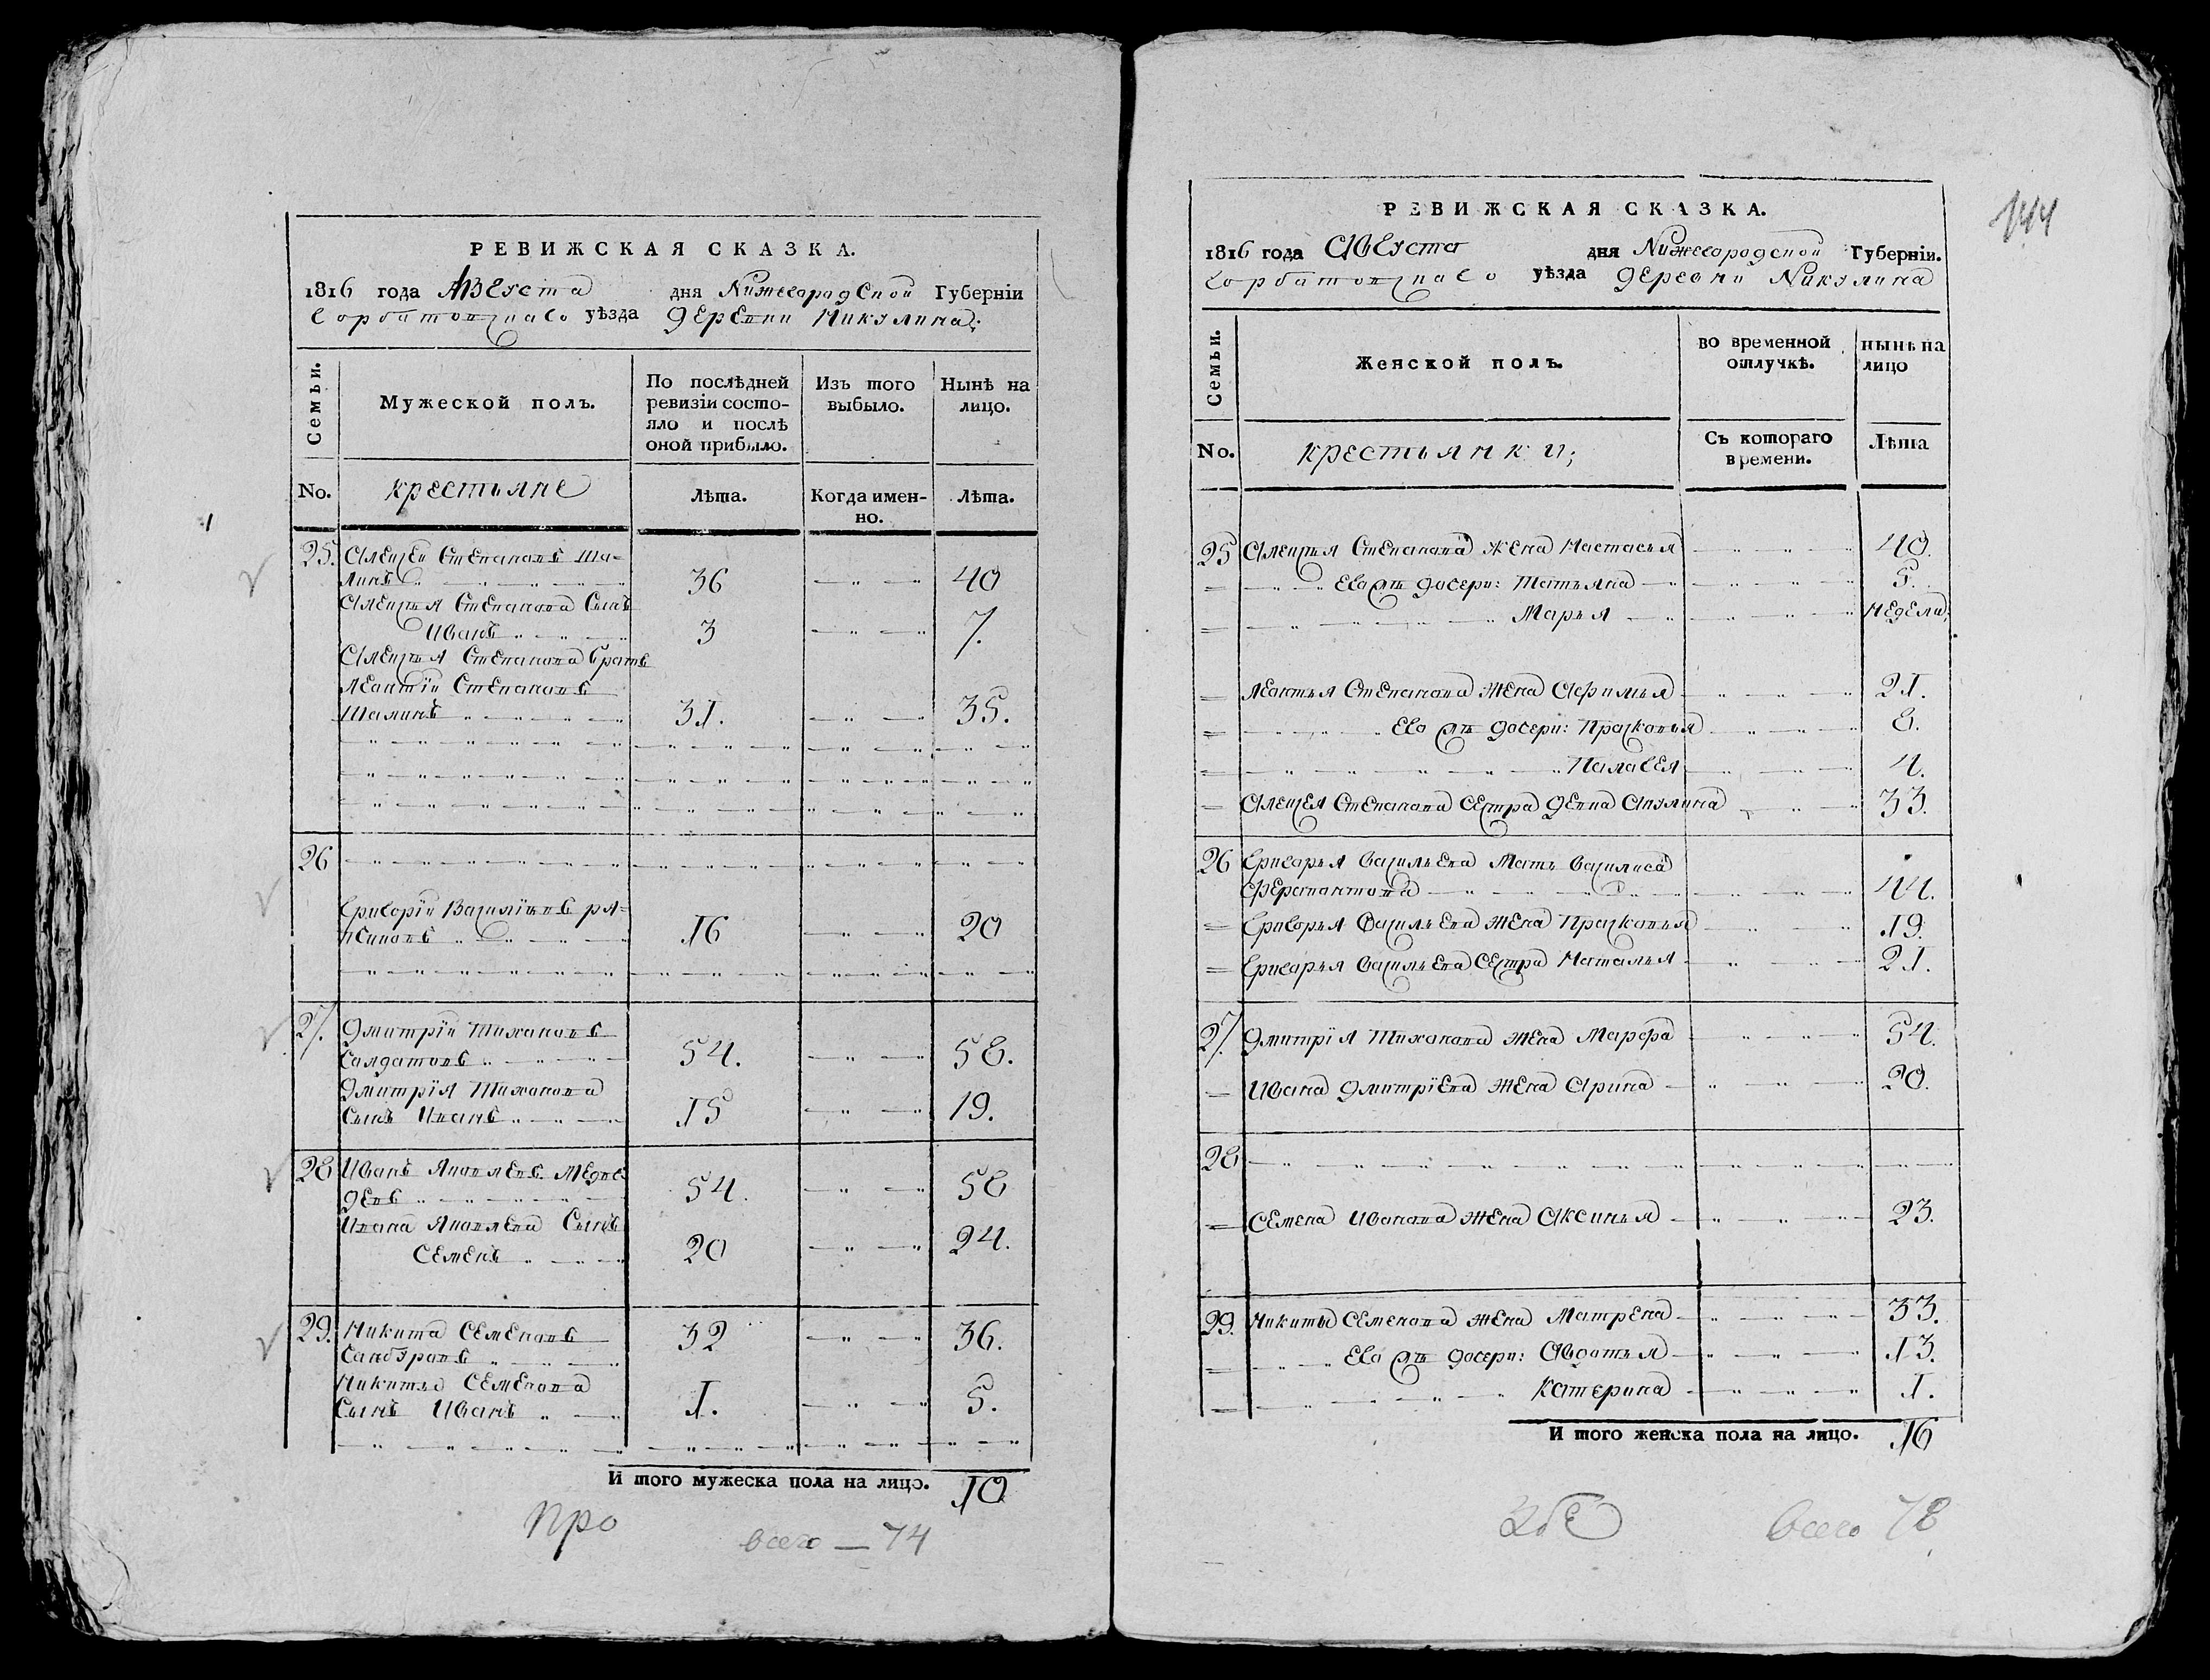 РЕВИЖСКАЯ СКАЗКА.
1816 года Августа дня Нижегородской Губерніи
Горбатовскаго уѣзда деревни Никулина;
Семьи.
Мужеской полъ.
По послѣдней ревизіи состояло и послѣ оной прибыло.
Изъ того выбыло.
Нынѣ на лицо.
No.
крестьяне
Лѣта.
Когда именно.
Лѣта.
25. Алексей Степановъ Ша-
линъ 36 40
Алексѣя Степанова Сынъ
Иванъ 3 7.
Алексѣя Степанова братъ
Леонтіи Степановъ
Шалинъ 31. 35.
26
Григоріи Василіевъ ря-
16 20
27. Дмитріи Тихановъ
Салдатовъ 54. 58.
Дмитрія Тиханова
Сынъ Иванъ 15 19.
28 Иванъ Яковлевъ Медве
девъ 54. 58
Ивана Яковлева Сынъ
Семенъ 20 24.
29. Никита Семеновъ
Санбуровъ 32 36.
Никиты Семенова
Сынъ Иванъ 1. 5.
И того мужеска пола на лицо. 10
Про
всего — 74
144
РЕВИЖСКАЯ СКАЗКА.
1816 года Августа дня Нижегородской Губерніи.
Горбатовскаго уѣзда деревни Никулина
Семьи.
Женской полъ.
во временной отлучкѣ.
нынѣ на лицо
No.
крестьянки;
Съ котораго времени.
Лѣта
25 Алексѣя Степанова жена Настасья 40.
Его жъ дочери: Татьяна 5.
Марья недели.
Леонтья Степанова жена Афимья 21.
Его жъ дочери: Прасковья 8.
Палагея 4.
Алексея Степанова сестра девка Акулина 33.
26 Григорья Васильева Мать Василиса
Ферапонтова 44.
Григорья Васильева жена Прасковья 19.
Григорья Васильева Сестра Наталья 21.
27. Дмитрія Тиханова жена Марфа 54.
Ивана Дмитріева жена Арина 20.
28
Семена Иванова жена Аксинья 23.
29. Никиты Семенова жена Матрена 33.
Его жъ дочери: Авдотья 13.
Катерина 1.
И того женска пола на лицо. 16
всего 78